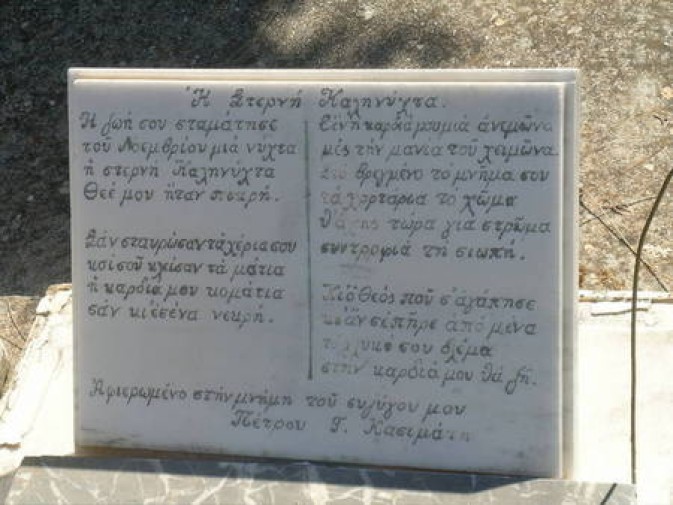 Ἡ Στερνή Καληνύχτα.
Η ζωή σου σταμάτησε
τοῦ Νοεμβρίου μιά νύχτα
ἡ στερνή Καληνύχτα
Θεέ μου ἦταν πικρή.
Σάν σταυρώσαν τά χέρια σου
καί σοῦ κλείσαν τά μάτια
ἡ καρδιά μου κομάτια
σάν κι ἐσένα νεκρή.
Εἶν ἡ καρδιά μου μιά ἀνεμώνα
μές τήν μανια τοῦ χειμῶνα.
Στό βρεγμένο τό μνῆμα σου
τά χορτάρια τό χῶμα
θἄχῃς τώρα για στρῶμα
συντροφιά τή σιωπή.
Κι ὁ Θεός ποῦ σ' ἀγάπησε
κι ἄν σέ πῆρε ἀπό μένα
τό γλυκό σου βλέμα
στην καρδιά μου θά ζῆ.
Αφιερωμένο στήν μνήμη τοῦ συζύγου μου
Πέτρου Γ. Κασιμάτη